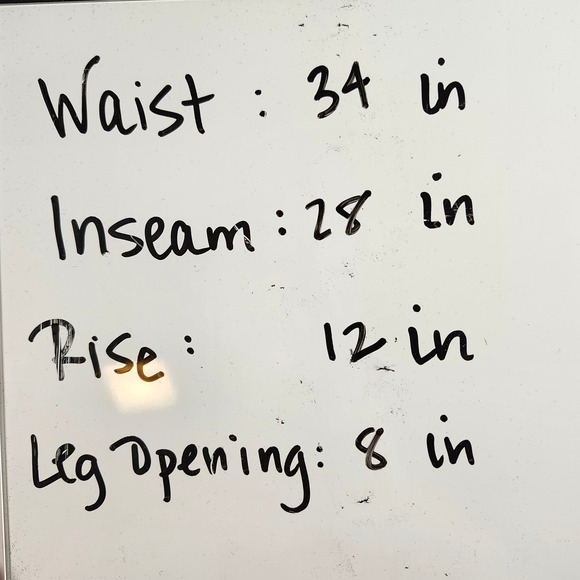 Waist : 34 in
Inseam : 28 in
Rise : 12 in
Leg Opening : 8 in